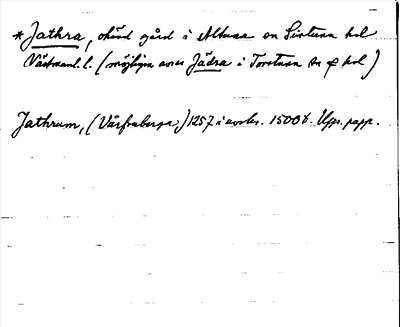 * Jathra, okänd gård i Altuna sn Simtuna hd
Västmanl. l. (möjligen avses Jädra i Torstuna sn o hd)
Jathrum, (Vårfruberga) 1257 i avskr. 1500 t. Upps. papp.